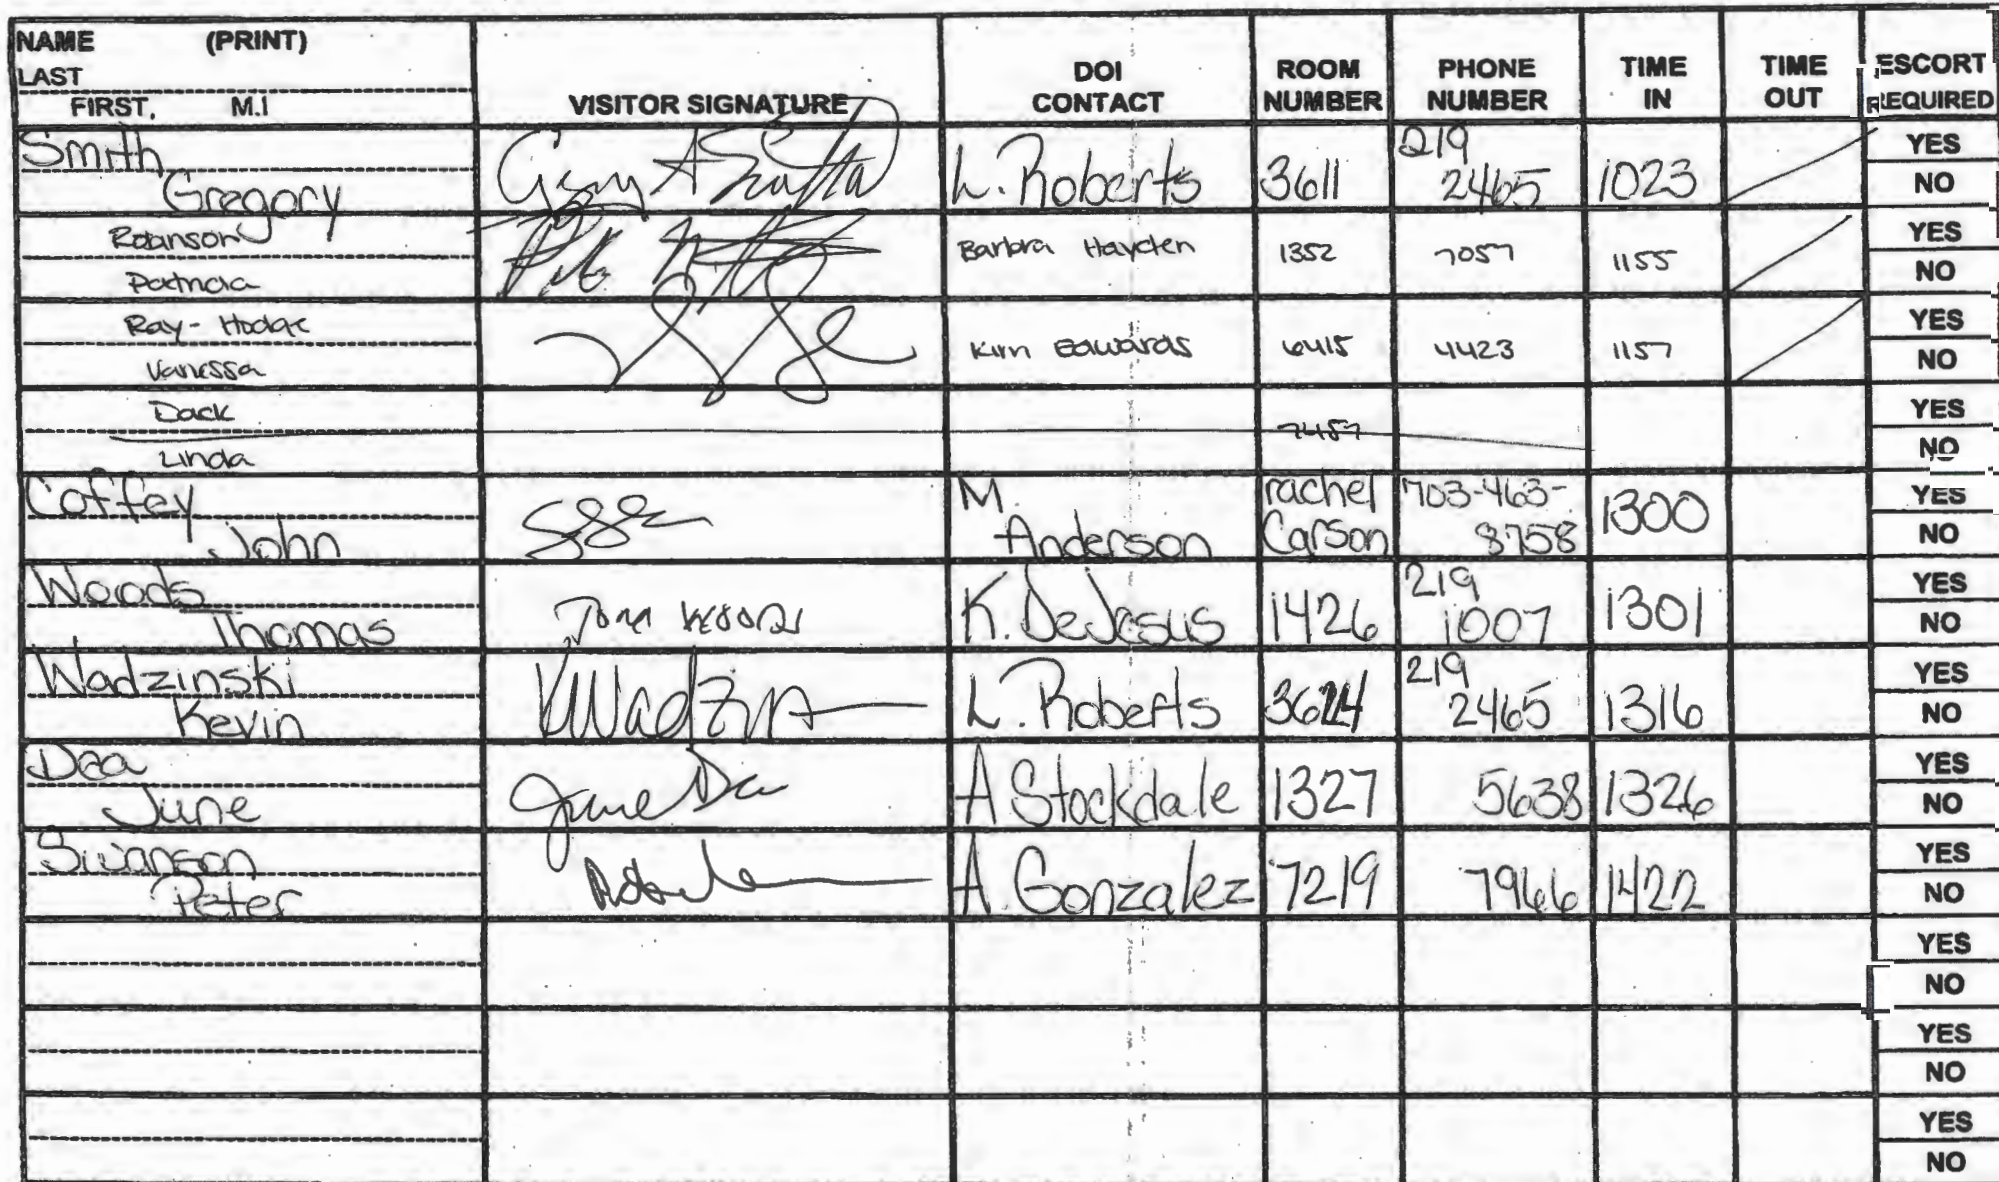 NAME (PRINT)
LAST
FIRST, M.I
VISITOR SIGNATURE
DOI
CONTACT
ROOM
NUMBER
PHONE
NUMBER
TIME
IN
TIME
OUT
ESCORT
REQUIRED
Smith
Gregory
L. Roberts
3611
219
2465
1023
YES
NO
Robinson
Patricia
Barbra Hayden
1352
7057
1155
YES
NO
Ray-Hodge
Vanessa
Kim Edwards
6415
4423
1157
YES
NO
Dack
Linda
7457
YES
NO
Coffey
John
M.
Anderson
rachel
Carson
703-463-
8758
1300
YES
NO
Woods
Thomas
Tom Woods
K. DeJesus
1426
219
1007
1301
YES
NO
Wadzinski
Kevin
KWadzin
L. Roberts
3624
219
2465
1316
YES
NO
Dea
June
June Dea
A Stockdale
1327
5638
1326
YES
NO
Swanson
Peter
A. Gonzalez
7219
7966
1422
YES
NO
YES
NO
YES
NO
YES
NO